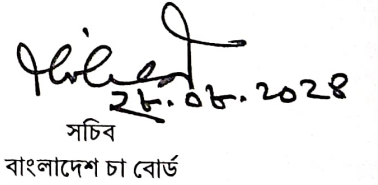 ২৮.০৮.২০২৪
সচিব
বাংলাদেশ চা বোর্ড